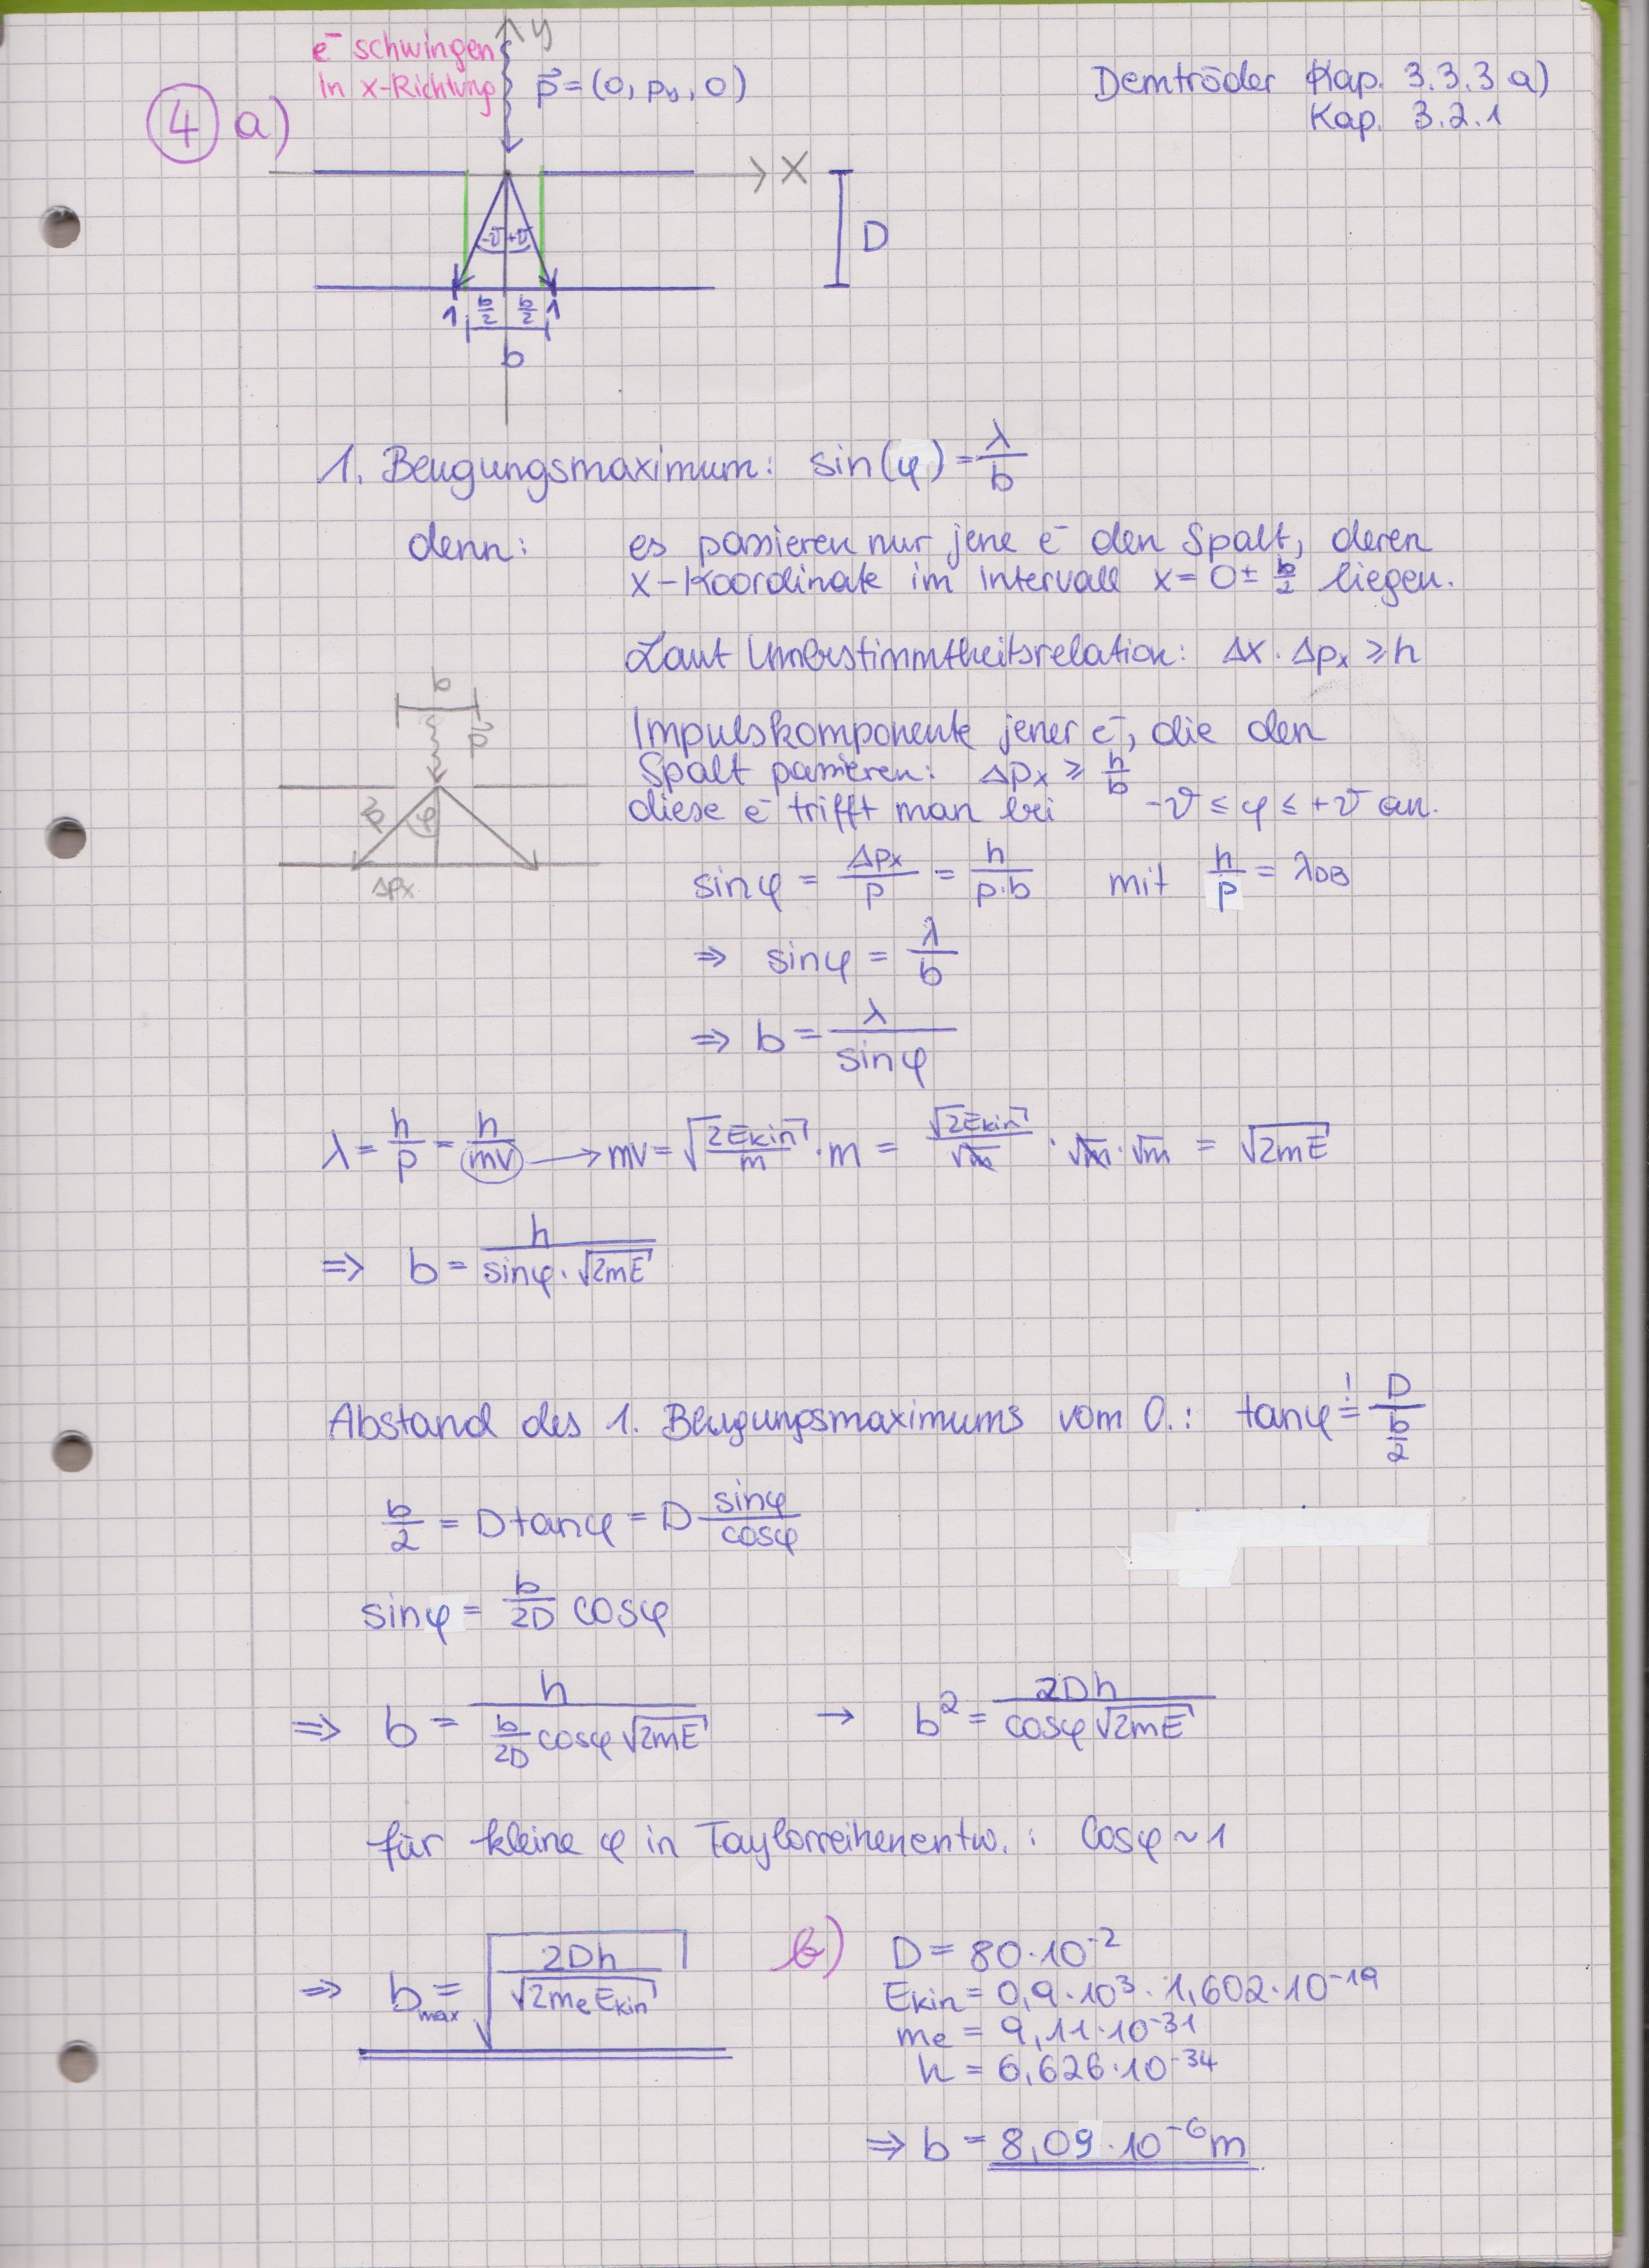 e⁻ schwingen
in x-Richtung
y
p⃗ = (0, py, 0)
Demtröder Kap. 3.3.3 a)
Kap. 3.2.1
④ a)
x
-ϑ +ϑ
D
1 b/2 b/2 1
b
1. Beugungsmaximum: sin(φ) = λ/b
denn: es passieren nur jene e⁻ den Spalt, deren
x-Koordinate im Intervall x = 0 ± b/2 liegen.
Laut Unbestimmtheitsrelation: Δx · Δpx ≥ h
b
p⃗
Impulskomponente jener e⁻, die den
Spalt passieren: Δpx ≥ h/b
diese e⁻ trifft man bei -ϑ ≤ φ ≤ +ϑ an.
p⃗ φ
Δpx
sinφ = Δpx/p = h/(p·b) mit h/p = λDB
⇒ sinφ = λ/b
⇒ b = λ/sinφ
λ = h/p = h/(mv) → mv = √(2Ekin/m) · m = √(2Ekin)/√m · √m · √m = √(2mE)
⇒ b = h/(sinφ · √(2mE))
Abstand des 1. Beugungsmaximums vom 0.: tanφ =! D/(b/2)
b/2 = D tanφ = D sinφ/cosφ
sinφ = b/2D cosφ
⇒ b = h/(b/2D cosφ √(2mE)) → b² = 2Dh/(cosφ √(2mE))
für kleine φ in Taylorreihenentw.: cosφ ~ 1
⇒ bmax = √(2Dh/√(2meEkin))
b) D = 80·10⁻²
Ekin = 0,9·10³·1,602·10⁻¹⁹
me = 9,11·10⁻³¹
h = 6,626·10⁻³⁴
⇒ b = 8,09·10⁻⁶m